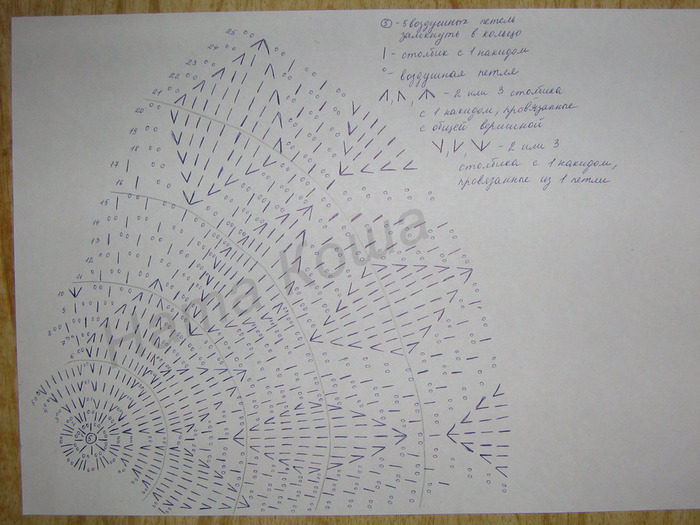 ⑤ - 5 воздушных петель
замкнуть в кольцо
| - столбик с 1 накидом
° - воздушная петля
- 2 или 3 столбика
с 1 накидом, провязанные
с общей вершиной
- 2 или 3
столбика с 1 накидом,
провязанные из 1 петли
25
24
23
22
21
20
19
18
17
16
15
14
13
12
11
10
9
8
5
Ната Коша